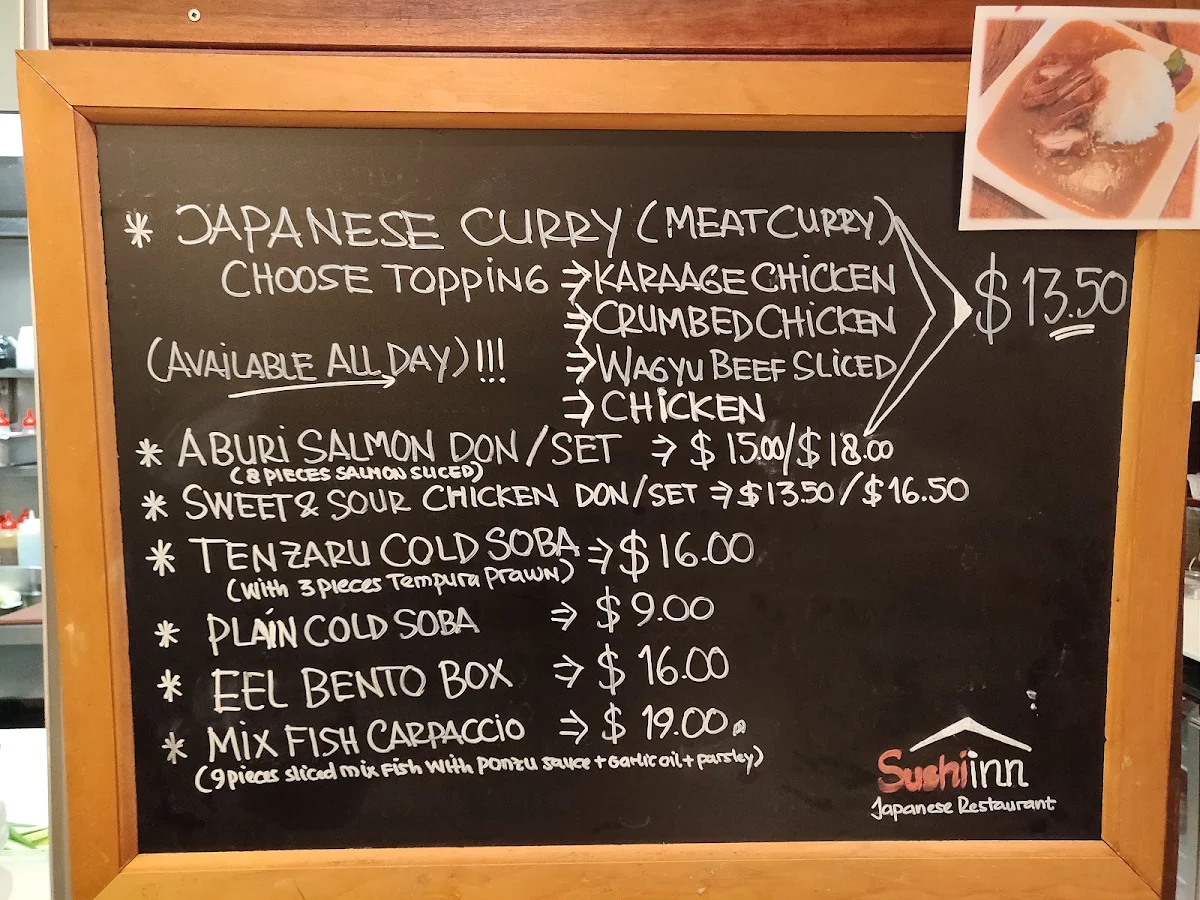 * JAPANESE CURRY (MEAT CURRY)
CHOOSE TOPPiNG ⇒ KARAAGE CHiCKEN $13.50
⇒ CRUMBED CHiCKEN
(AVAiLABLE ALL DAY)!!! ⇒ WAGYU BEEF SLiCED
⇒ CHiCKEN
* ABURi SALMON DON/SET ⇒ $15.00/$18.00
(8 PIECES SALMON SLICED)
* SWEET & SOUR CHICKEN DON/SET ⇒ $13.50/$16.50
* TENZARU COLD SOBA ⇒ $16.00
(with 3 pieces Tempura prawn)
* PLAiN COLD SOBA ⇒ $9.00
* EEL BENTO BOX ⇒ $16.00
* MiX FiSH CARPACCiO ⇒ $19.00
(9 pieces sliced mix fish with ponzu sauce + garlic oil + parsley)
Sushiinn
Japanese Restaurant